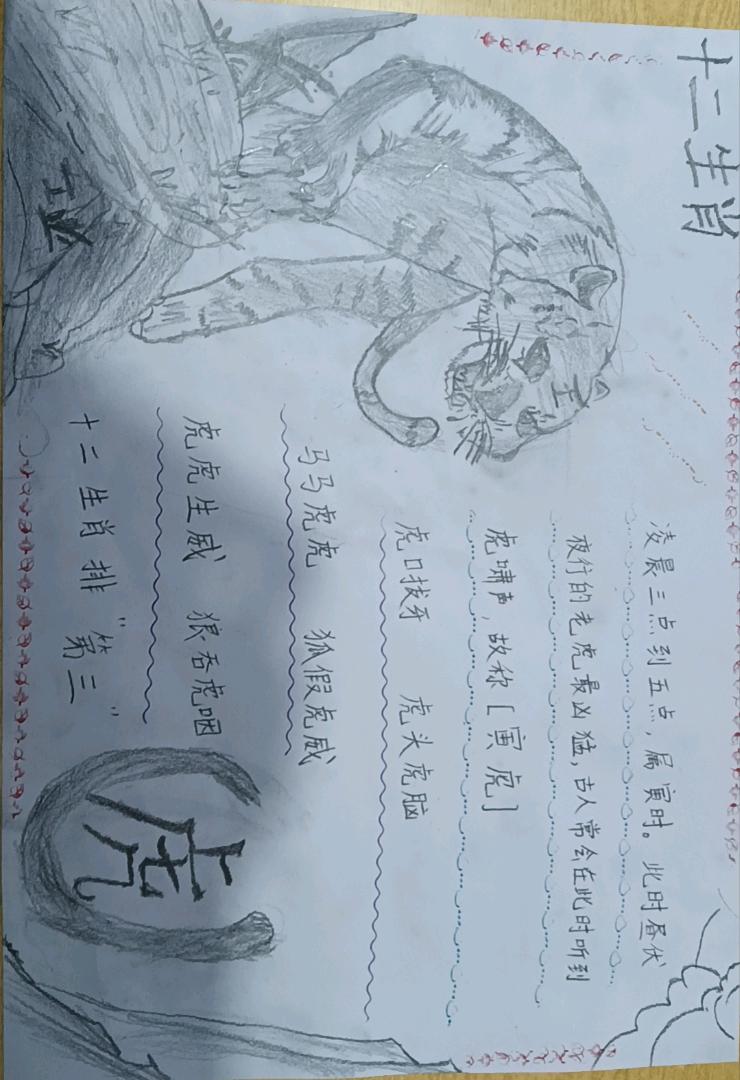 十二生肖
凌晨三点到五点，属寅时。此时昼伏
夜行的老虎最凶猛，古人常会在此时听到
虎啸声，故称[寅虎]
虎口拔牙 虎头虎脑
马马虎虎 狐假虎威
虎虎生威 狼吞虎咽
十二生肖排“第三”
虎
王